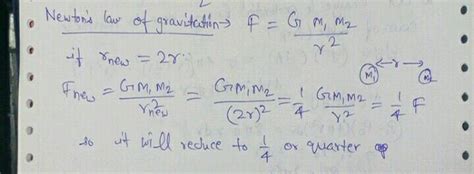 Newton's law of gravitation → F = G M₁ M₂ / r²
if r_new = 2r
M₁ ← r → M₂
F_new = G M₁ M₂ / r²_new = G M₁ M₂ / (2r)² = 1/4 G M₁ M₂ / r² = 1/4 F
so it will reduce to 1/4 or quarter